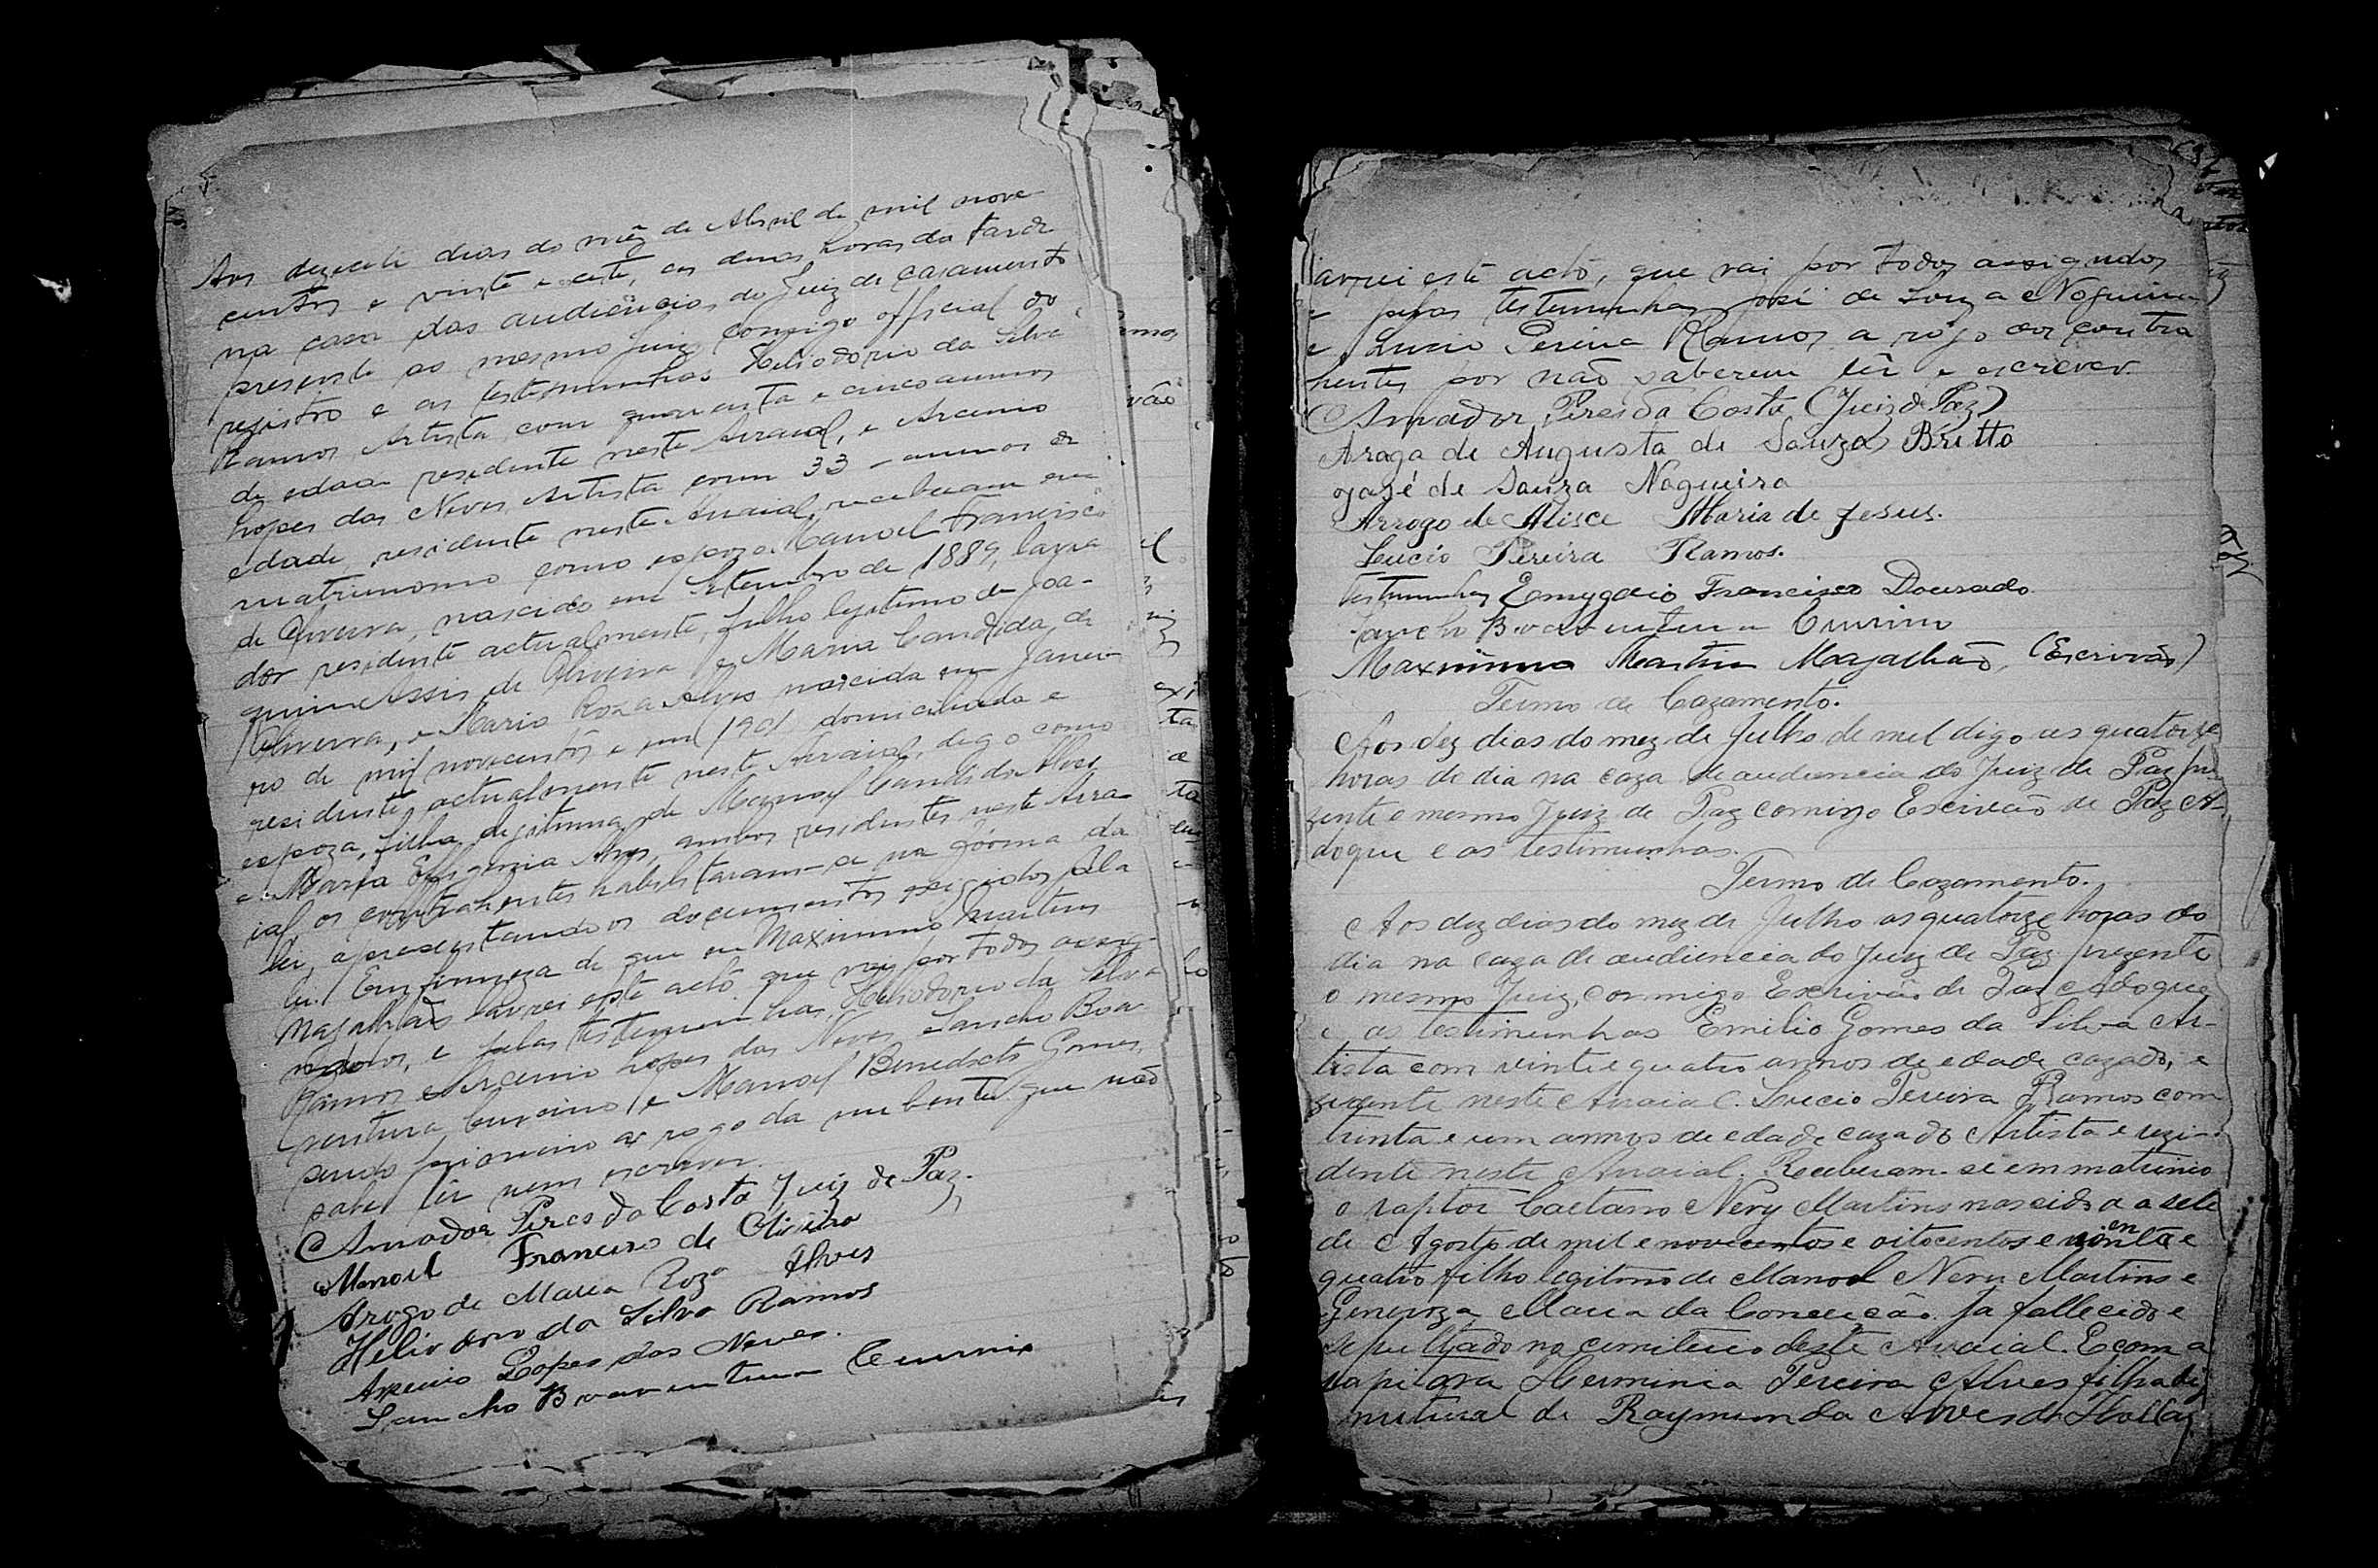 Aos dezecete dias do mêz de Abril de mil nove
centos e vinte e cete, as duas horas da tarde
na casa das audiências do Juiz de casamento
presente ao mesmo Juiz comigo official do
registro e as testemunhas Heliodorio da Silva
Ramos Artista com quarenta e cinco annos
de edade residente neste Arraial, e Arcenio
Lopes das Neves Artista com 33 annos de
edade residente neste Arraial, receberam em
matrimonio como espozo Manoel Francisco
de Oliveira, nascido em Setembro de 1889, lavra
dor residente actualmente, filho legitimo de Joa-
quim Assis de Oliveira e Maria Candida de
Oliveira, e Maria Roza Alves nascida em Janei-
ro de mil novecentos e um (1901) domiciliada e
residente, actualmente neste Arraial, digo como
espoza, filha legitima de Manoel Candido Alves
e Maria Alves, ambos residentes neste Arra
ial os contrahentes habilitaram-se na fórma da
lei, apresentando os documentos exigidos pela
lei. Em firmeza de que eu Maximino Martins
Magalhães lavrei este actô que vay por todos assig-
nados, e pelas testemunhas, Heliodorio da Silva
Ramos e Arcenio Lopes das Neves e Sancho Boa
ventura e Manoel Benedicto Gomes,
sendo primeiro a rogo da nubente que não
sabe lêr nem escrever.
Amador Pires da Costa, Juiz de Paz.
Manoel Francisco de Oliveira
Arogo de Maria Roza Alves
Heliodoro da Silva Ramos
Arsenio Lopes das Neves.
Sancho Boaventura
lavrei este actô, que vai por todos assignados
e pelas testemunhas José de Souza Nogueira
e Lucio Pereira Ramos a rôgo dos contra
hentes por não saberem lêr e escrever.
Amador Pires da Costa (Juiz de Paz)
Arogo de Augusta de Souza Britto
José de Souza Nogueira
Arrogo de Alisce Maria de Jesus.
Lucio Pereira Ramos.
testemunhas Emygdio Francisco Dourado.
Sancho Boaventura
Maximino Martins Magalhães, (Escrivão)
Termo de Cazamento.
Aos dez dias do mez de Julho de mil digo as quatorze
horas do dia na caza de audiencia do Juiz de Paz pre
zente o mesmo Juiz de Paz comigo Escivão de Paz A-
doque e as testimunhas.
Termo de Cazamento.
Aos dez dias do mez de Julho as quatorze horas do
dia na caza de audiencia do Juiz de Paz prezente
o mesmo Juiz, commigo Escrivão de Paz Adoque
e as testimunhas Emilio Gomes da Silva Ar-
tista com vinte e quatro annos de edade cazado, e
zidente neste Arraial. Lucio Pereira Ramos com
trinta e um annos de edade cazado Artista e rezi-
dente neste Arraial. Receberam-se em matrimo
o raptor Caetano Nery Martins nascido a a sete
de Agosto de mil e novecentos e oitocentos e noventa e
quatro filho legitimo de Manoel Nery Martins e
Generoza Maria da Conceição. ja fallecido e
sepultado no cemiterio deste Arraial. E com a
raptora Herminia Pereira Alves filha
natural de Raymunda Alves